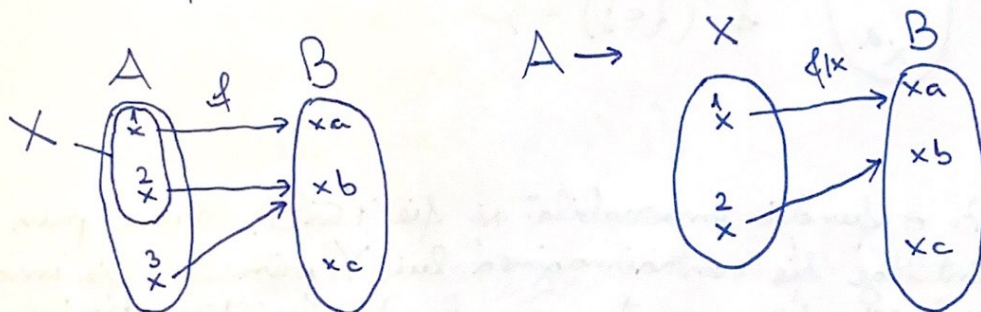 A f B
X
1 x
2 x
3 x
x a
x b
x c
A → X f|x B
1 x
2 x
x a
x b
x c